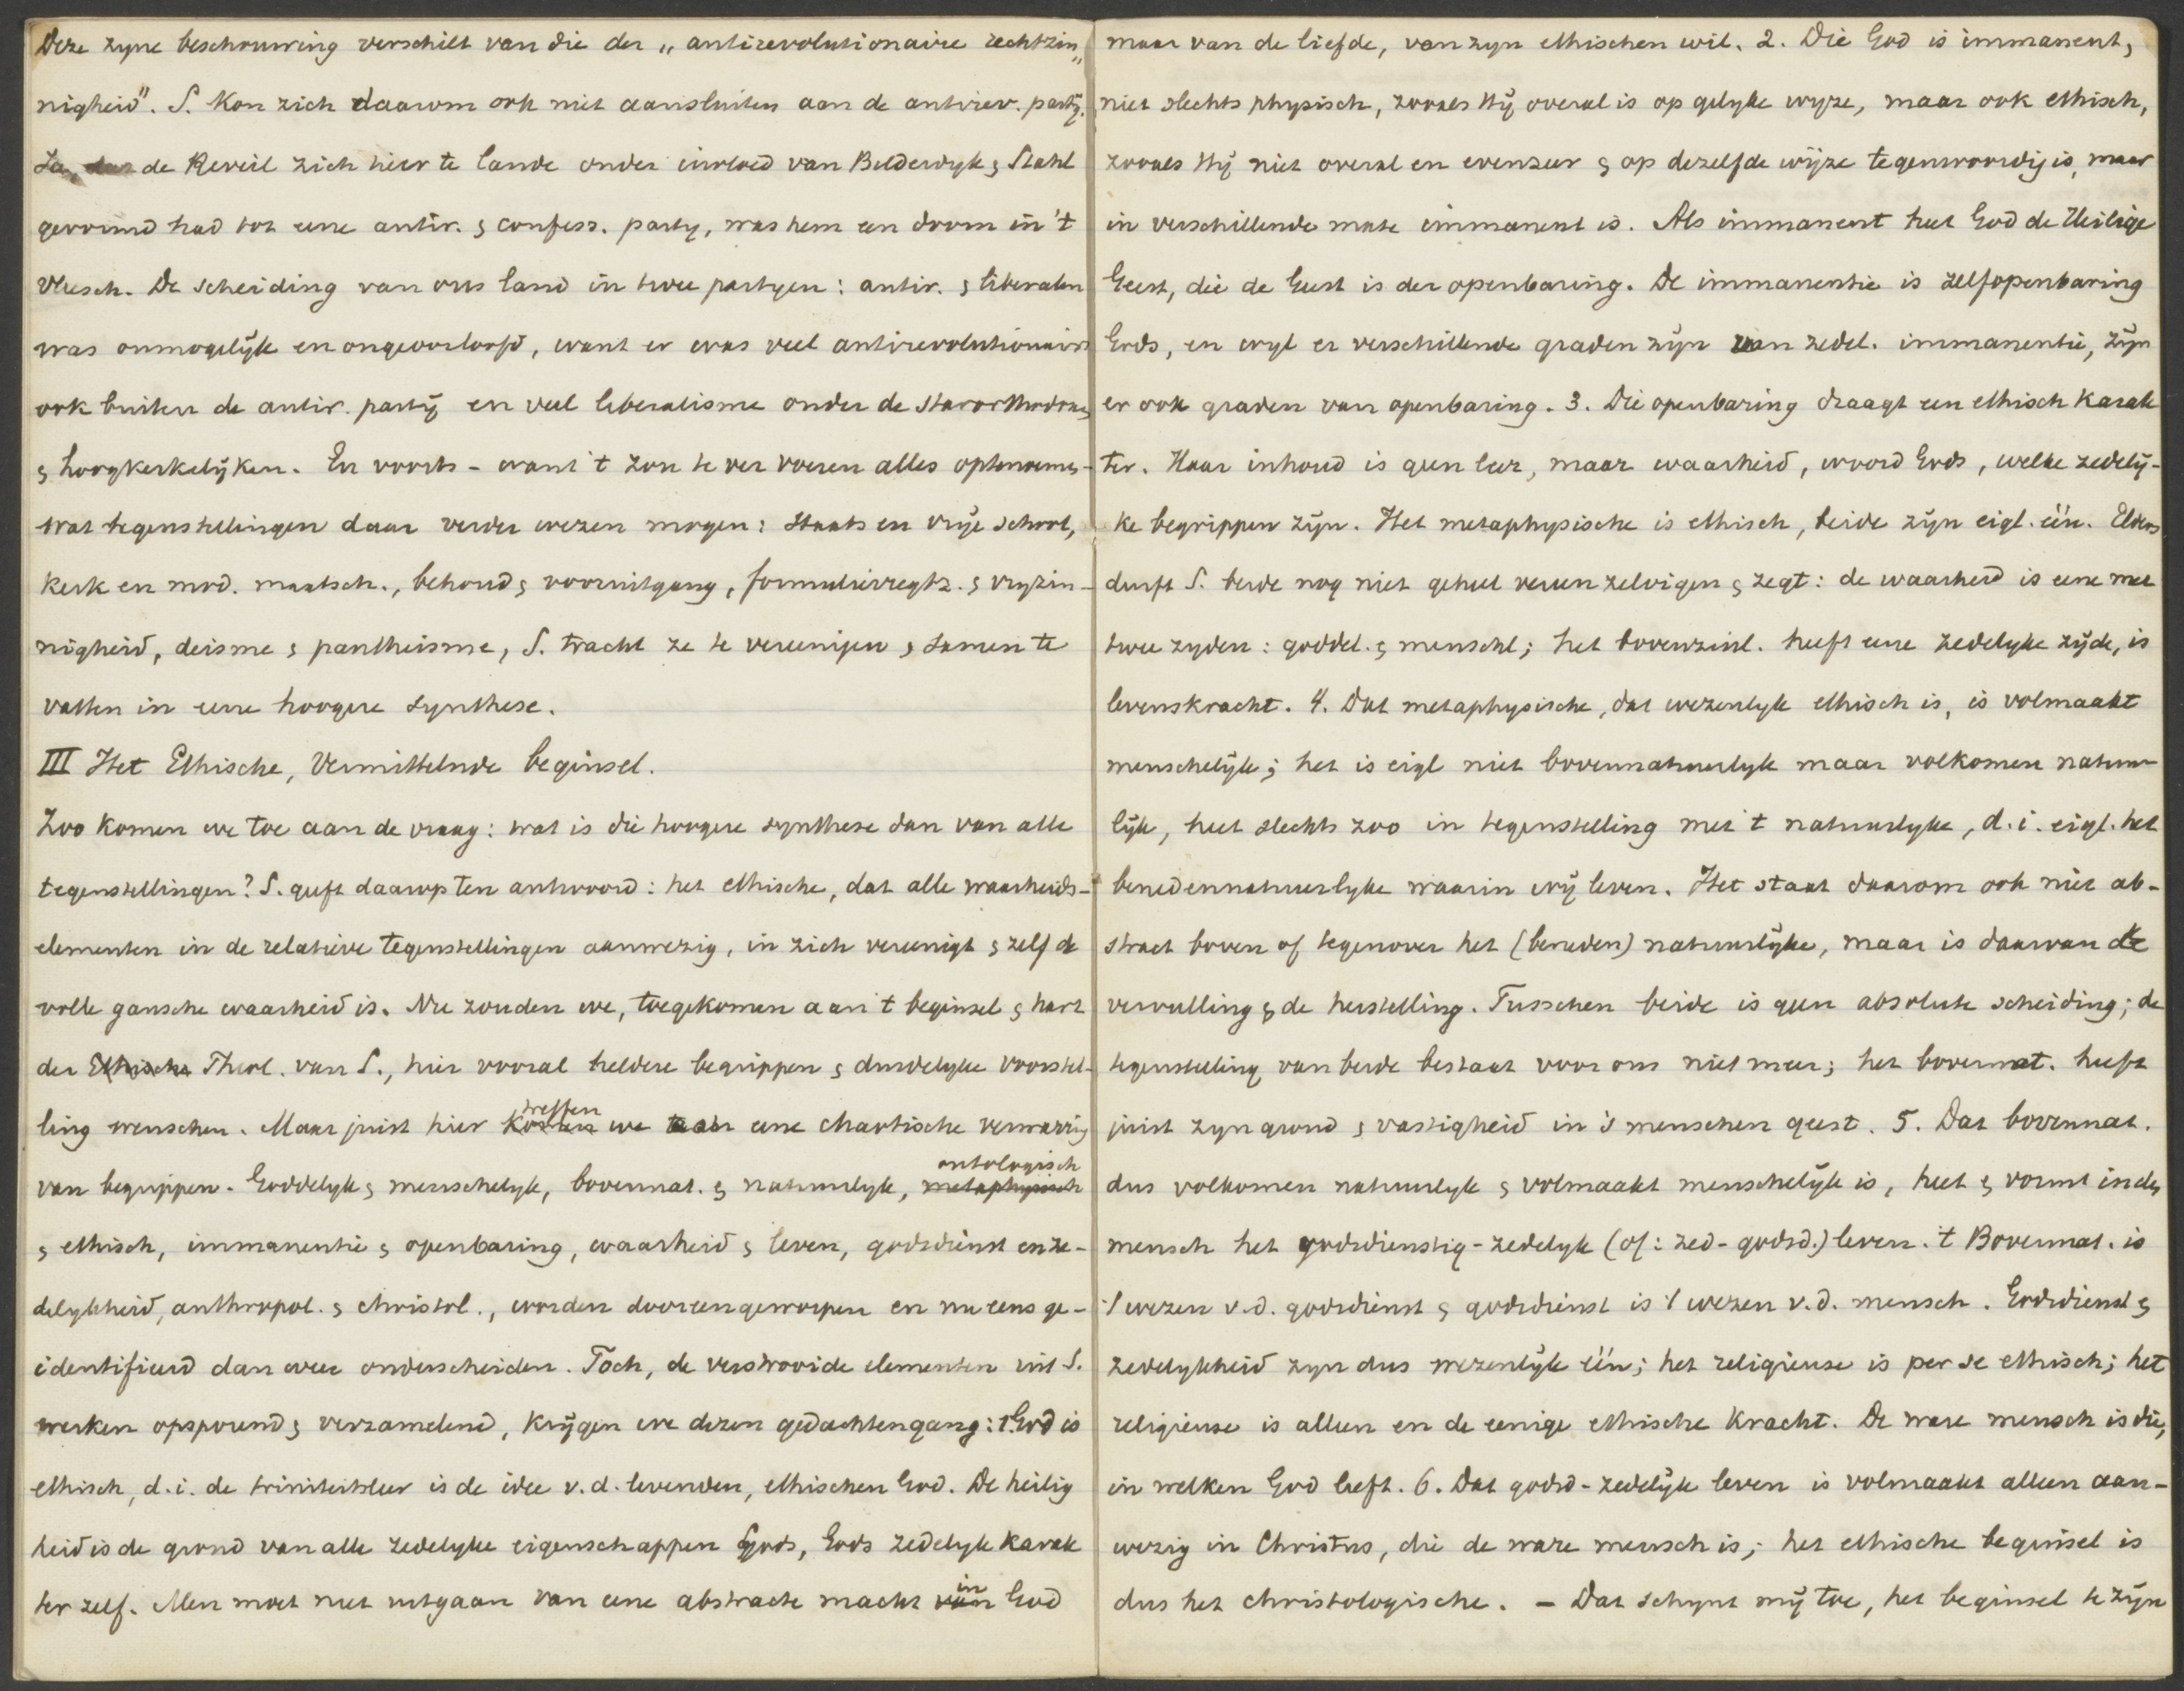 Deze zyne beschouwing verschilt van die der „antirevolutionaire rechtzin„
nigheid". S. kon zich daarom ook niet aansluiten aan de antirev. partÿ.
Ja, de Reveil zich hier te lande onder invloed van Bilderdyk & Stahl
gevormd had tot eene antir. & confess. party, was hem een doorn in 't
vleesch. De scheiding van ons land in twee partyen: antir. & liberalen
was onmogelÿk en ongeoorloofd, want er was veel antirevolutionairs
ook buiten de antir. partÿ en veel liberalisme onder de starorthodoxe
& hoogkerkelÿken. En voorts - want 't zou te ver voeren alles optenoemen -
wat tegenstellingen daar verder wezen mogen: Staats en vrÿe school,
kerk en mod. maatsch., behoud & vooruitgang, formulierregtz. & vryzin-
nigheid, deisme & pantheisme, S. tracht ze te vereenigen & samen te
vatten in eene hoogere synthese.
III Het Ethische, Vermittelnde beginsel.
Zoo komen we toe aan de vraag: wat is die hoogere synthese dan van alle
tegenstellingen? S. geeft daarop ten antwoord: het ethische, dat alle waarheids-
elementen in de relatieve tegenstellingen aanwezig, in zich vereenigt & zelf de
volle gansche waarheid is. Nu zouden we, toegekomen aan 't beginsel & hart
der Ethische Theol. van S., hier vooral heldere begrippen & duidelyke voorstel-
ling wenschen. Maar juist hier treffen we eene chaotische verwarring
van begrippen. Goddelyk & menschelyk, bovennat. & natuurlyk, ontologisch metaphysisch
& ethisch, immanentie & openbaring, waarheid & leven, godsdienst en ze-
delykheid, anthropol. & christol., worden dooreengeworpen en nu eens ge-
identificeerd dan weer onderscheiden. Toch, de verstrooide elementen uit S.
werken opsporend & verzamelend, krÿgen we dezen gedachtengang: 1. God is
ethisch, d.i. de triniteitsleer is de idee v.d. levenden, ethischen God. De heilig
heid is de grond van alle zedelyke eigenschappen Gods, Gods zedelyk karak
ter zelf. Men moet niet uitgaan van eene abstracte macht in God
maar van de liefde, van zyn ethischen wil. 2. Die God is immanent,
niet slechts physisch, zooals Hÿ overal is op gelyke wyze, maar ook ethisch,
zooals Hÿ niet overal en evenzeer & op dezelfde wÿze tegenwoordig is, maar
in verschillende mate immanent is. Als immanent heet God de Heilige
Geest, die de Geest is der openbaring. De immanentie is zelfopenbaring
Gods, en wyl er verschillende graden zÿn van zedel. immanentie, zÿn
er ook graden van openbaring. 3. Die openbaring draagt een ethisch karak
ter. Haar inhoud is geen leer, maar waarheid, woord Gods, welke zedelÿ-
ke begrippen zÿn. Het metaphysische is ethisch, beide zÿn eigl. één. Elders
durft S. beide nog niet geheel vereenzelvigen & zegt: de waarheid is eene met
twee zyden: goddel. & menschl; het bovenzinl. heeft eene zedelyke zÿde, is
levenskracht. 4. Dat metaphysische, dat wezenlyk ethisch is, is volmaakt
menschelÿk; het is eigl niet bovennatuurlyk maar volkomen natuur
lÿk, heet slechts zoo in tegenstelling met 't natuurlyke, d.i. eigl. het
benedennatuurlyke waarin wÿ leven. Het staat daarom ook niet ab-
stract boven of tegenover het (beneden) natuurlÿke, maar is daarvan de
vervulling & de herstelling. Tusschen beide is geen absolute scheiding; de
tegenstelling van beide bestaat voor ons niet meer; het bovennat. heeft
juist zyn grond & vastigheid in 's menschen geest. 5. Dat bovennat.
dus volkomen natuurlyk & volmaakt menschelÿk is, heet & vormt in den
mensch het godsdienstig-zedelyk (of: zed-godsd.) leven. 't Bovennat. is
't wezen v.d. godsdienst & godsdienst is 't wezen v.d. mensch. Godsdienst &
zedelykheid zyn dus wezenlÿk één; het religieuse is per se ethisch; het
religieuse is alleen en de eenige ethische kracht. De ware mensch is die,
in welken God leeft. 6. Dat godsd-zedelÿk leven is volmaakt alleen aan-
wezig in Christus, die de ware mensch is; het ethische beginsel is
dus het christologische. – Dat schynt mÿ toe, het beginsel te zÿn